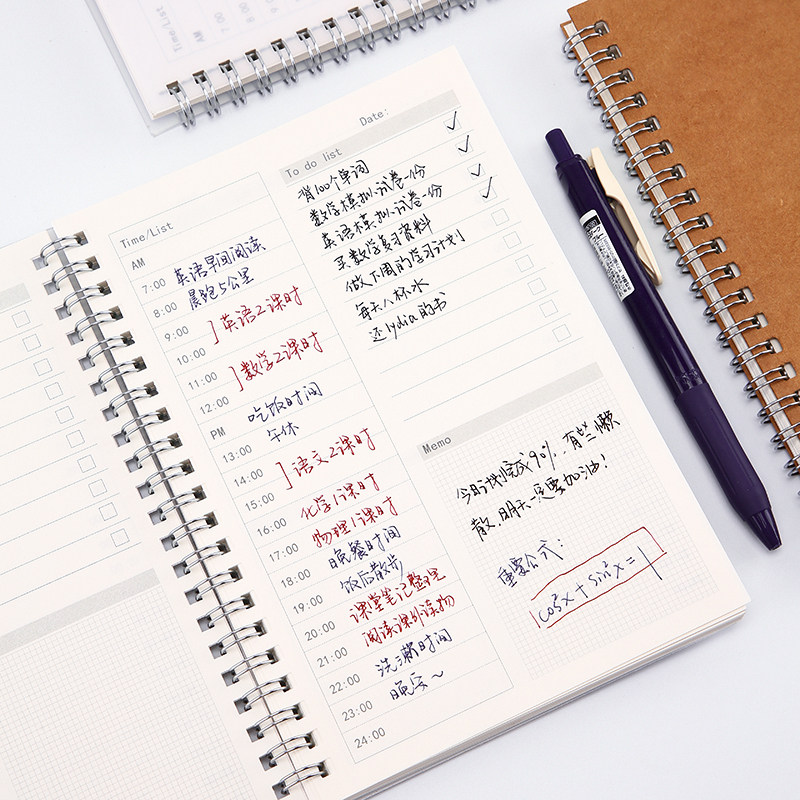 Time/List
AM
7:00 英语早间阅读
8:00 晨跑5公里
9:00
10:00 ]英语2课时
11:00
12:00 ]数学2课时
PM 吃饭时间
13:00 午休
14:00
15:00 ]语文2课时
16:00 化学1课时
17:00 物理1课时
18:00 晚餐时间
19:00 饭后散步
20:00 课堂笔记整理
21:00 阅读课外读物
22:00 洗漱时间
23:00 晚安~
24:00
Date:
To do list
背100个单词
数学模拟试卷一份
英语模拟试卷一份
买数学复习资料
做下周的学习计划
每天八杯水
还lydia的书
Memo
今日计划完成90%,有些懒
散,明天一定要加油!
重要公式:
cos²x+sin²x=1
Time/List
AM